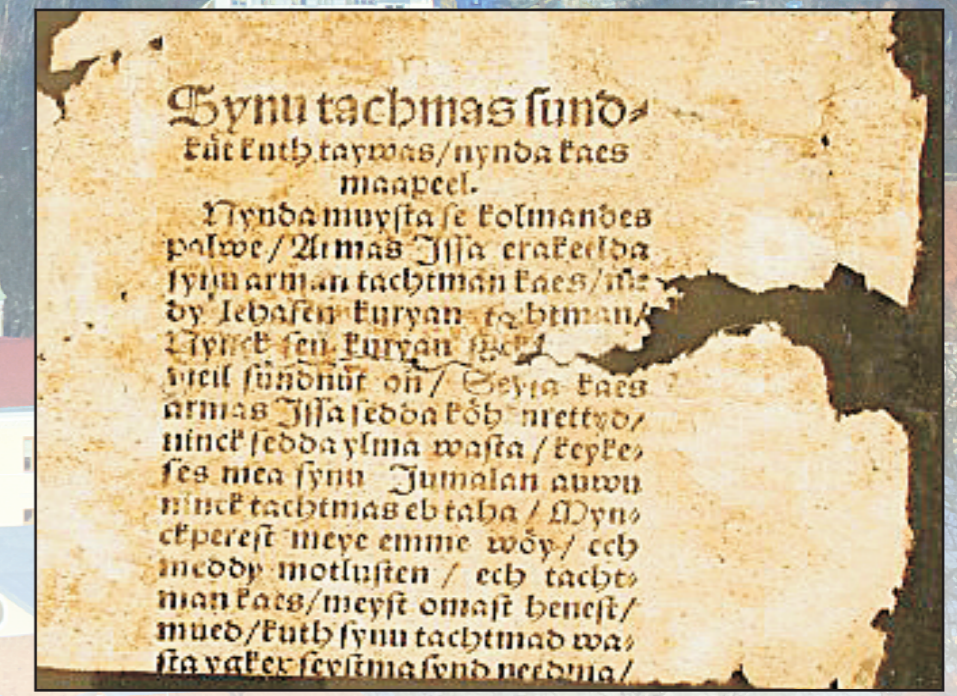 Synu tachmas sund⸗
kut kuth taywas/nynda kaes
maapeel.
Nynda muysta se kolmandes
palwe/Armas Issa erakeelda
synu arman tachtman kaes/
dy lehasen kuryan tachtman/
Nynck sen kuryan
weil sundnut on/ Seysa kaes
armas Issa sedda köh mettyd/
ninck sedda ylma wasta/keyke⸗
ses mea synu Jumalan auwu
ninck tachtmas eb taha/Myn⸗
ckperest meye emme wöy/ ech
meddy motlusten/ ech tacht⸗
man kaes/meyst omast henest/
mued/kuth synu tachtmad wa⸗
sta